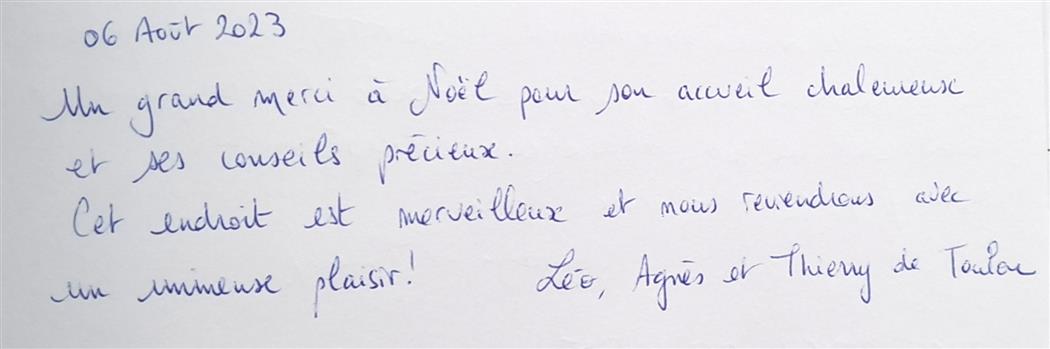 06 Août 2023
Un grand merci à Noël pour son accueil chaleureux
et ses conseils précieux.
Cet endroit est merveilleux et nous reviendrons avec
un immense plaisir! Léo, Agnès et Thierry de Toulon